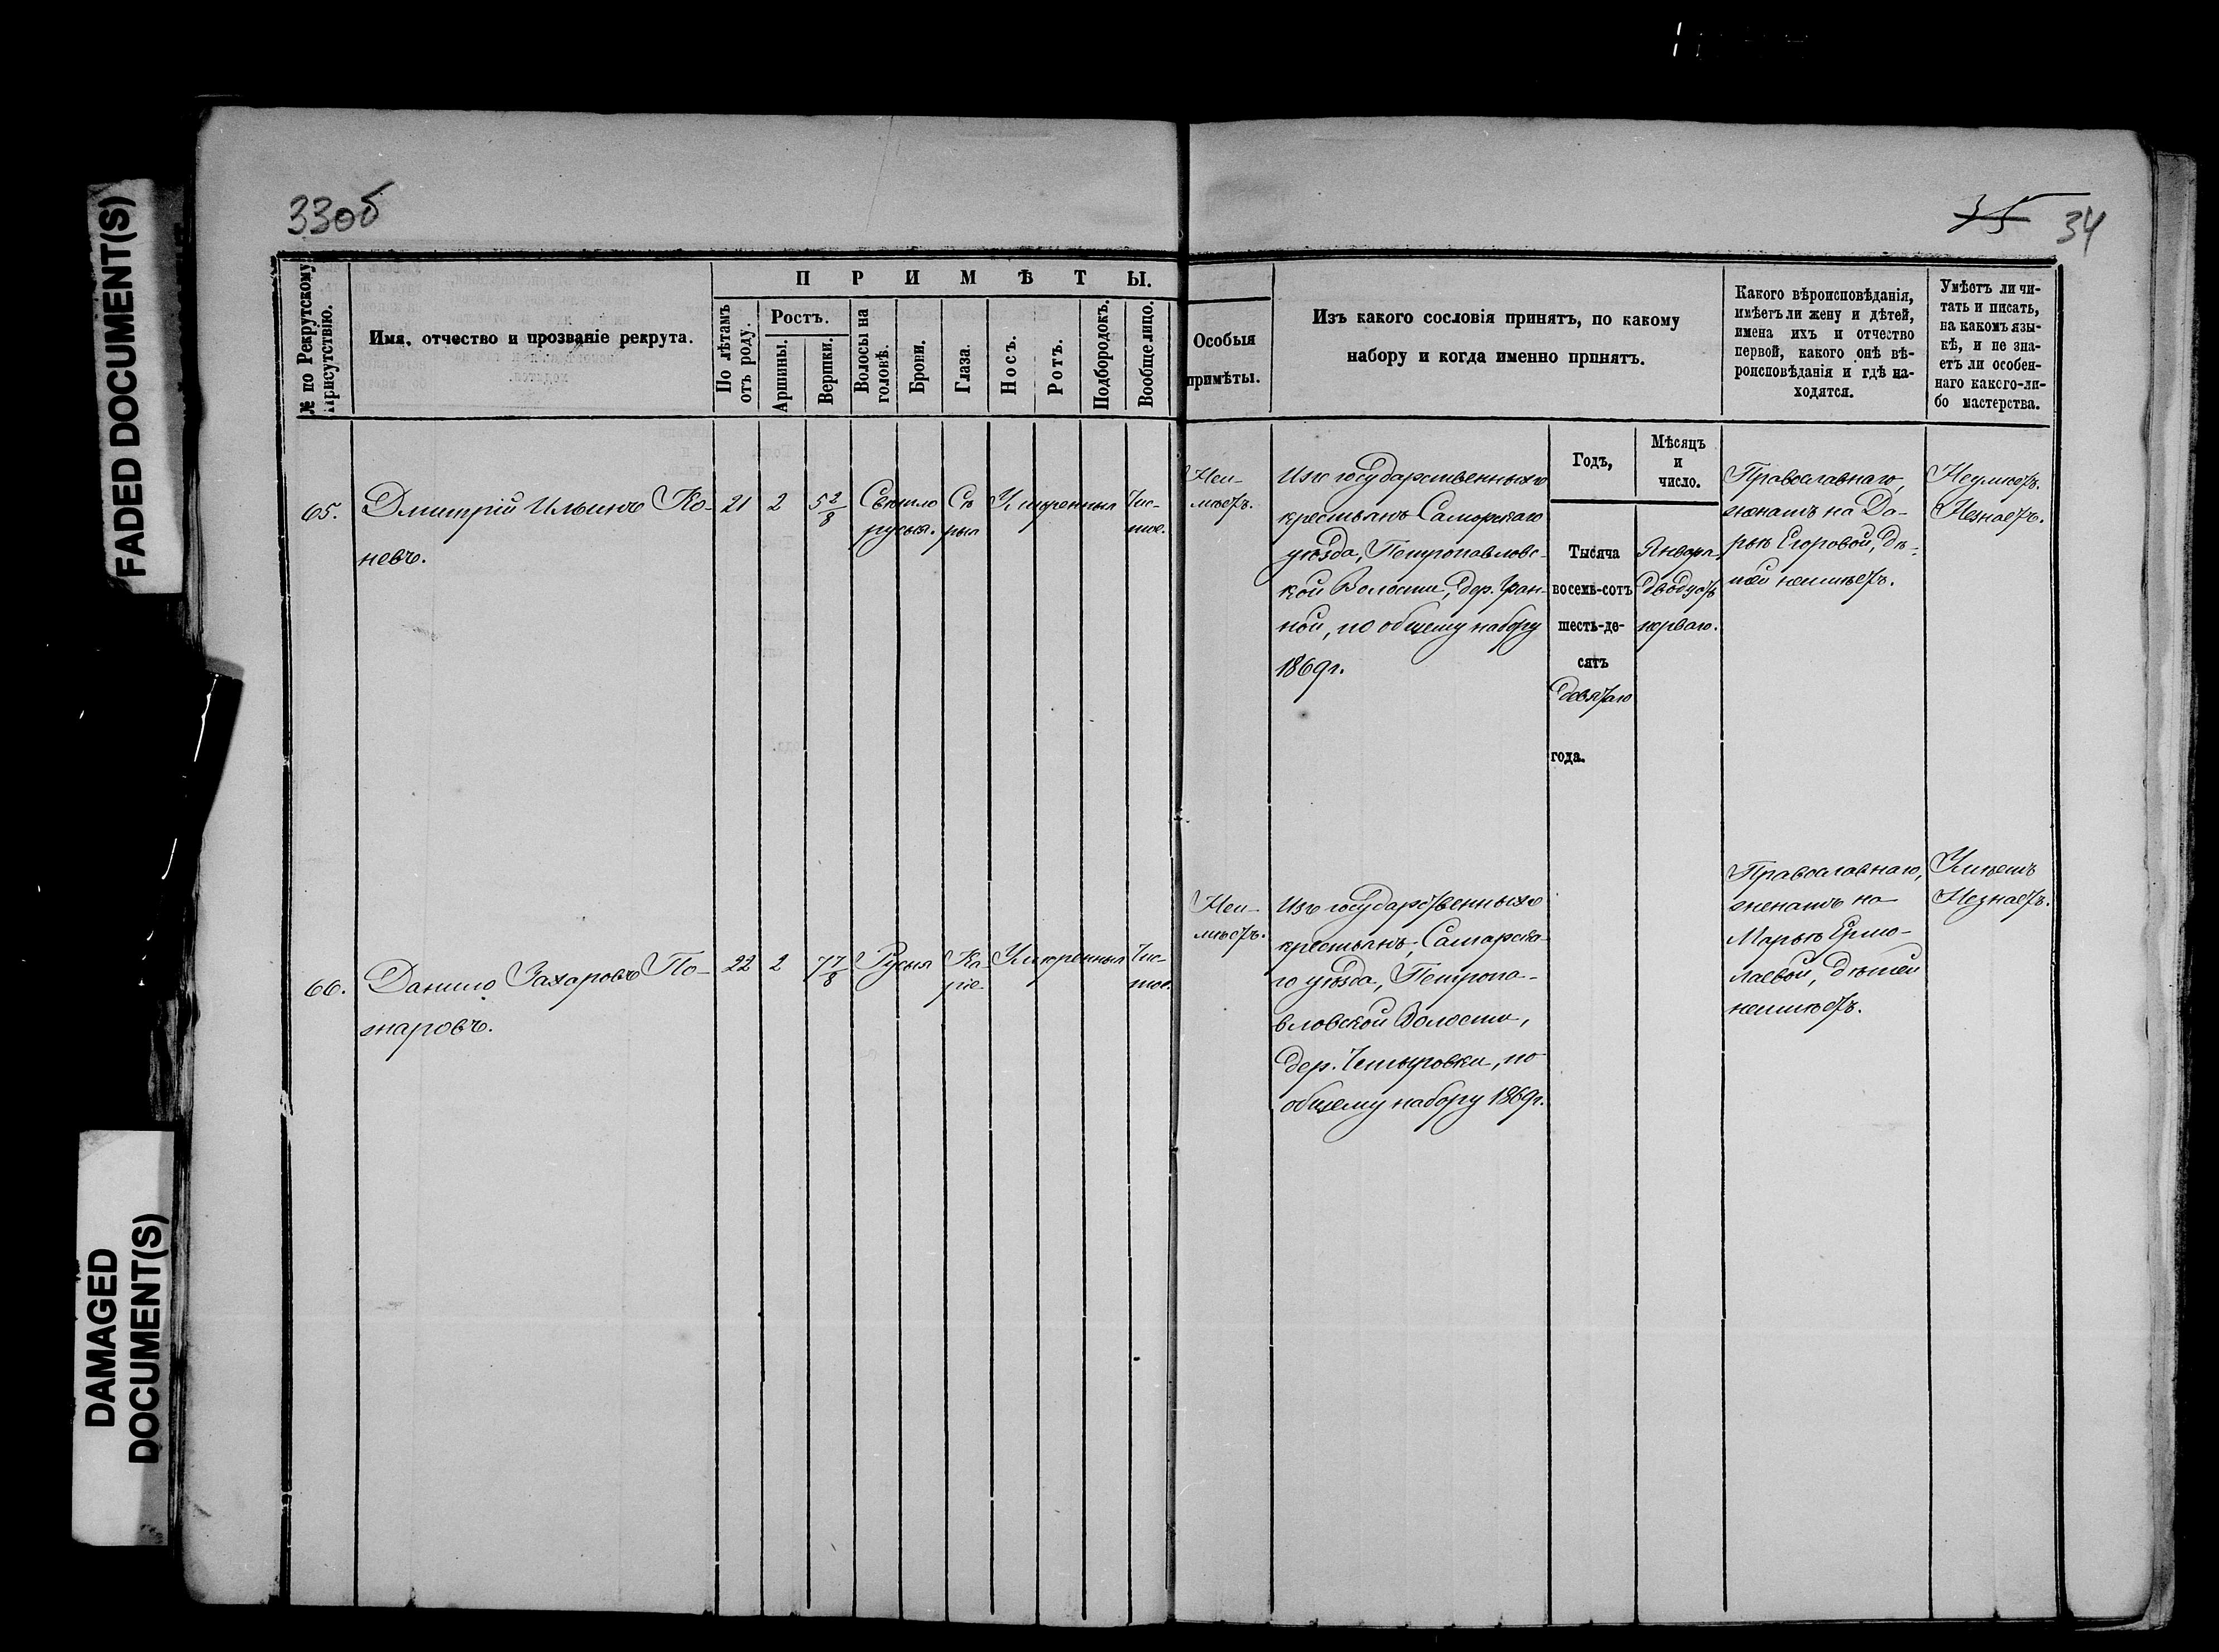 FADED DOCUMENT(S)
DAMAGED
DOCUMENT(S)
33об
35 34
№ по Рекрутскому
Присутствію.
Имя, отчество и прозваніе рекрута.
ПРИМѢТЫ.
По лѣтамъ
отъ роду.
Ростъ.
Аршины.
Вершки.
Волосы на
головѣ.
Брови.
Глаза.
Носъ.
Ротъ.
Подбородокъ.
Вообще лицо.
Особыя
примѣты.
Изъ какого сословія принятъ, по какому
набору и когда именно принятъ.
Какого вѣроисповѣданія,
имѣетъ ли жену и дѣтей,
имена ихъ и отчество
первой, какого онѣ вѣ-
роисповѣданія и гдѣ на-
ходятся.
Умѣетъ ли чи-
тать и писать,
на какомъ язы-
кѣ, и не зна-
етъ ли особен-
наго какого-ли-
бо мастерства.
Годъ,
Мѣсяцъ
и
число.
65.
Дмитрій Ильинъ Ко-
невъ.
21
2
5 2/8
Свѣтло
русыя.
Сѣ
рыя
Умѣренныя
Чис-
тое.
Неи-
мѣетъ.
Изъ государственныхъ
крестьянъ Самарскаго
уѣзда, Петропавловс-
кой Волости, дер. Гран-
ной, по общему набору
1869 г.
Тысяча
восемь-сотъ
шесть-де-
сятъ
девятаго
года.
Января
двадцать
перваго.
Православнаго,
женатъ на Да-
рьѣ Егоровой, дѣ-
тей неимѣетъ.
Неумѣетъ.
Незнаетъ.
66.
Данило Захаровъ По-
жаровъ.
22
2
7 7/8
Русыя
Ка-
ріе
Умѣренныя
Чис-
тое.
Неи-
мѣетъ.
Изъ государственныхъ
крестьянъ, Самарска-
го уѣзда, Петропа-
вловской Волости,
дер. Четыровки, по
общему набору 1869 г.
Православнаго,
женатъ на
Марьѣ Ермо-
лаевой, дѣтей
неимѣетъ.
Умѣетъ
Незнаетъ.